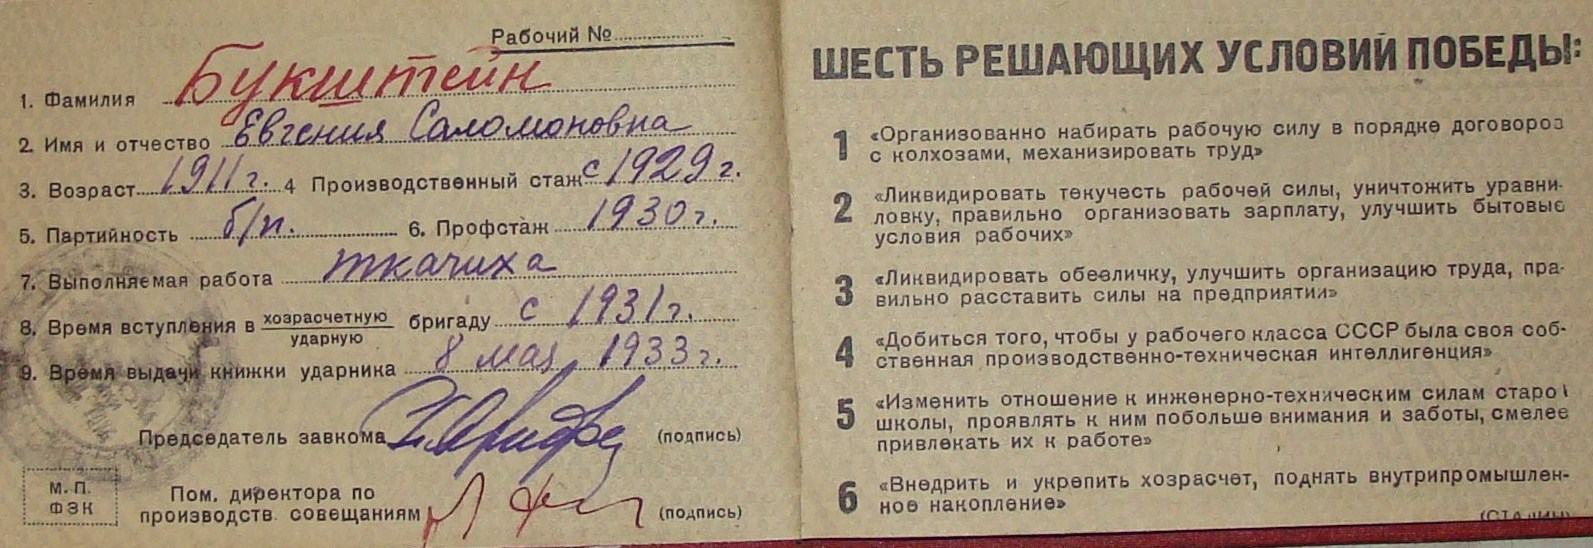 Рабочий №
1. Фамилия Букштейн
2. Имя и отчество Евгения Саломоновна
3. Возраст 1911 г. 4 Производственный стаж с 1929 г.
5. Партийность б/п. 6. Профстаж 1930 г.
7. Выполняемая работа ткачиха
8. Время вступления в хозрасчетную бригаду с 1931 г.
ударную
9. Время выдачи книжки ударника 8 мая 1933 г.
Председатель завкома (подпись)
М. П.
ФЗК
Пом. директора по
производств. совещаниям (подпись)
ШЕСТЬ РЕШАЮЩИХ УСЛОВИЙ ПОБЕДЫ:
1 «Организованно набирать рабочую силу в порядке договоров
с колхозами, механизировать труд»
2 «Ликвидировать текучесть рабочей силы, уничтожить уравни-
ловку, правильно организовать зарплату, улучшить бытовые
условия рабочих»
3 «Ликвидировать обезличку, улучшить организацию труда, пра-
вильно расставить силы на предприятии»
4 «Добиться того, чтобы у рабочего класса СССР была своя соб-
ственная производственно-техническая интеллигенция»
5 «Изменить отношение к инженерно-техническим силам старой
школы, проявлять к ним побольше внимания и заботы, смелее
привлекать их к работе»
6 «Внедрить и укрепить хозрасчет, поднять внутрипромышлен-
ное накопление»
(СТАЛИН)